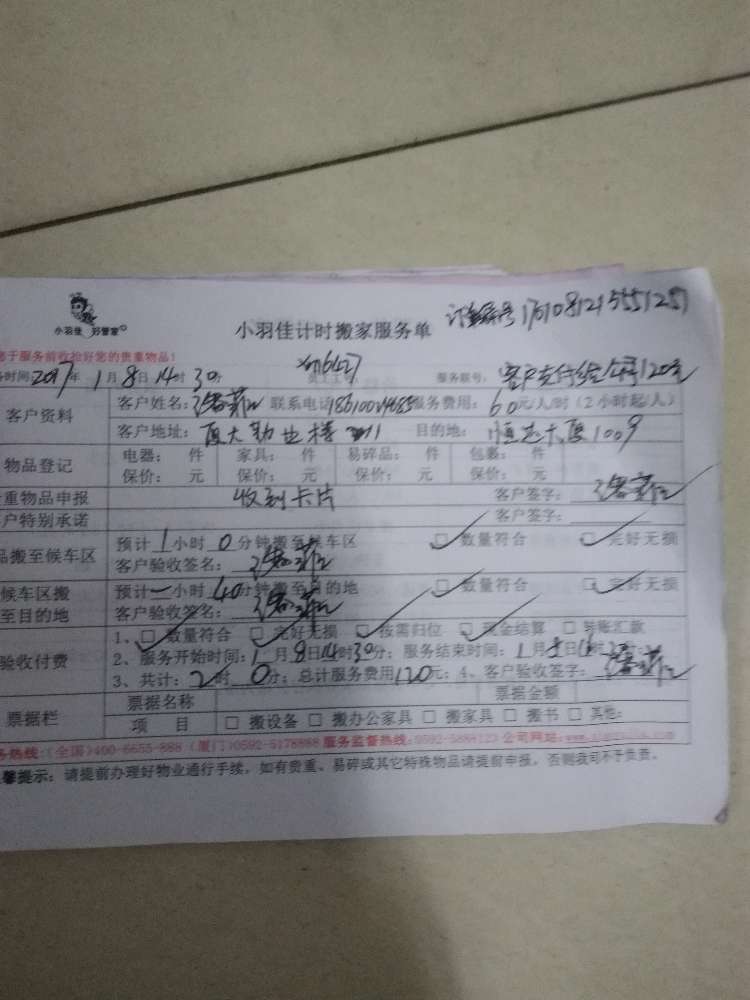 小羽佳 好管家
小羽佳计时搬家服务单
您于服务前收拾好您的贵重物品！
时间：2017年1月8日14时30分 服务联号：客户支付给公司120元
客户资料 客户姓名： 联系电话 服务费用：60元/人/时（2小时起/人）
客户地址：厦大勤业楼 目的地：1009
物品登记 电器： 件 家具： 件 易碎品： 件 包裹： 件
保价： 元 保价： 元 保价： 元 保价： 元
重物品申报 收到卡片 客户签字：
户特别承诺 客户签字：
品搬至候车区 预计1小时0分钟搬至候车区 □数量符合 □完好无损
客户验收签名：
候车区搬至目的地 预计一小时40分钟搬至目的地 □数量符合 □完好无损
客户验收签名：
验收付费 1、□数量符合 □完好无损 □按需归位 □现金结算 □转账汇款
2、服务开始时间：1月8日14时30分；服务结束时间：1月
3、共计：2时0分；总计服务费用120元；4、客户验收签字：
票据栏 票据名称 票据金额
项 目 □搬设备 □搬办公家具 □搬家具 □搬书 □其他：
务热线：（全国）400-6655-888（厦门）0592-5178888 服务监督热线：0592-5888123 公司网站：
馨提示：请提前办理好物业通行手续，如有贵重、易碎或其它特殊物品请提前申报，否则我司不予负责。